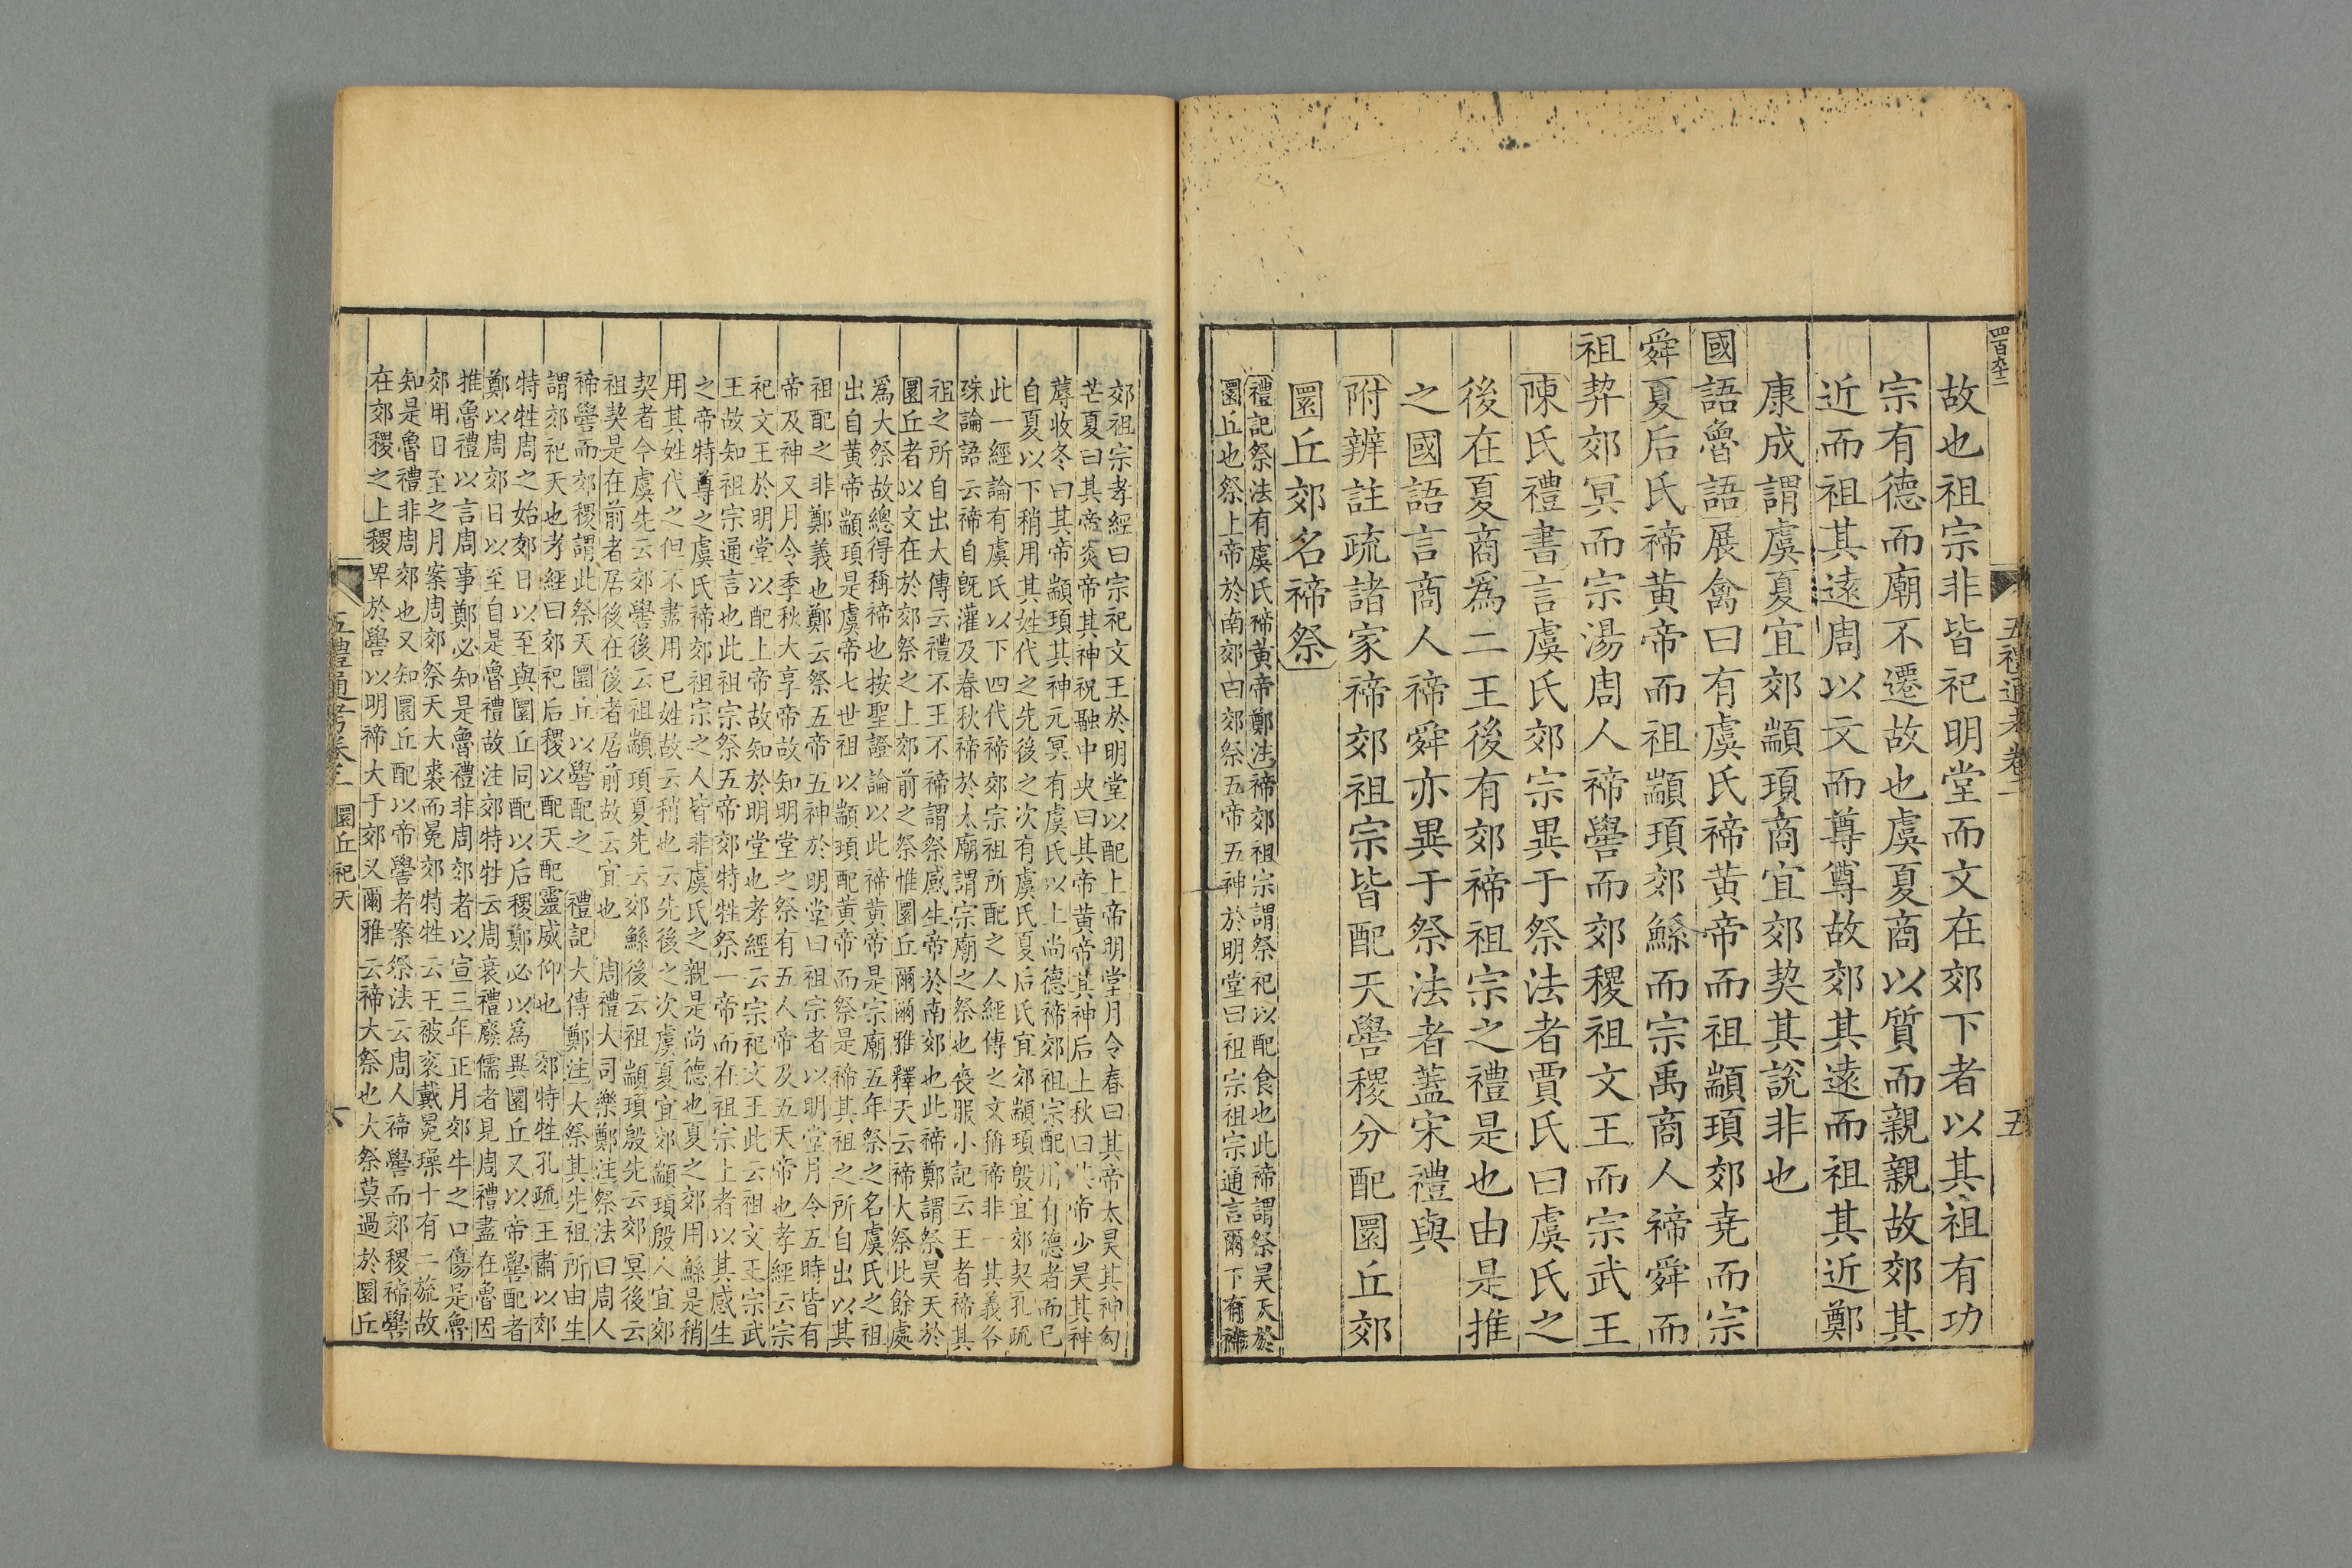 四百九十二
五禮通考卷二
五
故也祖宗非皆祀明堂而文在郊下者以其祖有功
宗有德而廟不遷故也虞夏商以質而親親故郊其
近而祖其遠周以文而尊尊故郊其遠而祖其近鄭
康成謂虞夏宜郊顓頊商宜郊契其說非也
國語魯語展禽曰有虞氏禘黃帝而祖顓頊郊尭而宗
舜夏后氏禘黃帝而祖顓頊郊鯀而宗禹商人禘舜而
祖契郊冥而宗湯周人禘嚳而郊稷祖文王而宗武王
陳氏禮書言虞氏郊宗異于祭法者賈氏曰虞氏之
後在夏商爲二王後有郊禘祖宗之禮是也由是推
之國語言商人禘舜亦異于祭法者蓋宋禮與
附辨註疏諸家禘郊祖宗皆配天嚳稷分配圜丘郊
圜丘郊名禘祭
禮記祭法有虞氏禘黃帝鄭注禘郊祖宗謂祭祀以配食也此禘謂祭昊天於
圜丘也祭上帝於南郊曰郊祭五帝五神於明堂曰祖宗祖宗通言爾下有禘
郊祖宗孝經曰宗祀文王於明堂以配上帝明堂月令春曰其帝太昊其神勾
芒夏曰其帝炎帝其神祝融中央曰其帝黃帝其神后土秋曰其帝少昊其神
蓐收冬曰其帝顓頊其神元冥有虞氏以上尚德禘郊祖宗配用有德者而已
自夏以下稍用其姓代之先後之次有虞氏夏后氏宜郊顓頊殷宜郊契孔疏
此一經論有虞氏以下四代禘郊宗祖所配之人經傳之文稱禘非一其義各
殊論語云禘自旣灌及春秋禘於太廟謂宗廟之祭也喪服小記云王者禘其
祖之所自出大傳云禮不王不禘謂祭感生帝於南郊也此禘鄭謂祭昊天於
圜丘者以文在於郊祭之上郊前之祭惟圜丘爾爾雅釋天云禘大祭此餘處
爲大祭故總得稱禘也按聖證論以此禘黃帝是宗廟五年祭之名虞氏之祖
出自黃帝顓頊是虞帝七世祖以顓頊配黃帝而祭是禘其祖之所自出以其
祖配之非鄭義也鄭云祭五帝五神於明堂曰祖宗者以明堂月令五時皆有
帝及神又月令季秋大享帝故知明堂之祭有五人帝及五天帝也孝經云宗
祀文王於明堂以配上帝故知於明堂也孝經云宗祀文王此云祖文王宗武
王故知祖宗通言也此祖宗祭五帝郊特牲祭一帝而在祖宗上者以其感生
之帝特尊之虞氏禘郊祖宗之人皆非虞氏之親是尚德也夏之郊用鯀是稍
用其姓代之但不盡用已姓故云稍也云先後之次虞夏宜郊顓頊殷人宜郊
契者今虞先云郊嚳後云祖顓頊夏先云郊鯀後云祖顓頊殷先云郊冥後云
祖契是在前者居後在後者居前故云宜也　周禮大司樂鄭注祭法曰周人
禘嚳而郊稷謂此祭天圜丘以嚳配之　禮記大傳鄭注大祭其先祖所由生
謂郊祀天也孝經曰郊祀后稷以配天配靈威仰也　郊特牲孔疏王肅以郊
特牲周之始郊日以至與圜丘同配以后稷鄭必以爲異圜丘又以帝嚳配者
鄭以周郊日以至自是魯禮故注郊特牲云周衰禮廢儒者見周禮盡在魯因
推魯禮以言周事鄭必知是魯禮非周郊者以宣三年正月郊牛之口傷是魯
郊用日至之月案周郊祭天大裘而冕郊特牲云王被衮戴冕璪十有二旒故
知是魯禮非周郊也又知圜丘配以帝嚳者案祭法云周人禘嚳而郊稷禘嚳
在郊稷之上稷卑於嚳以明禘大于郊又爾雅云禘大祭也大祭莫過於圜丘
五禮通考卷二　圜丘祀天
六